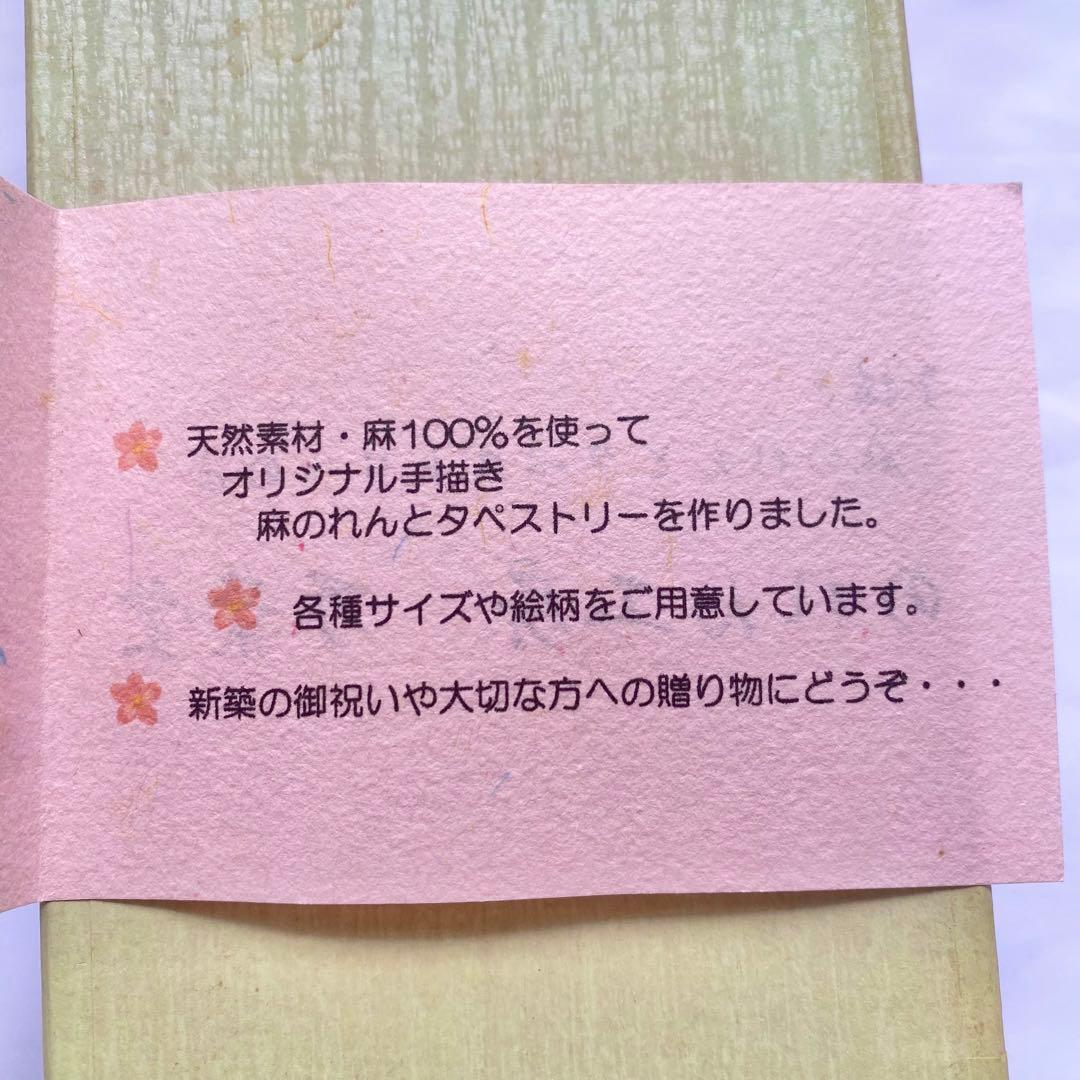 天然素材・麻100%を使って
オリジナル手描き
麻のれんとタペストリーを作りました。
各種サイズや絵柄をご用意しています。
新築の御祝いや大切な方への贈り物にどうぞ・・・